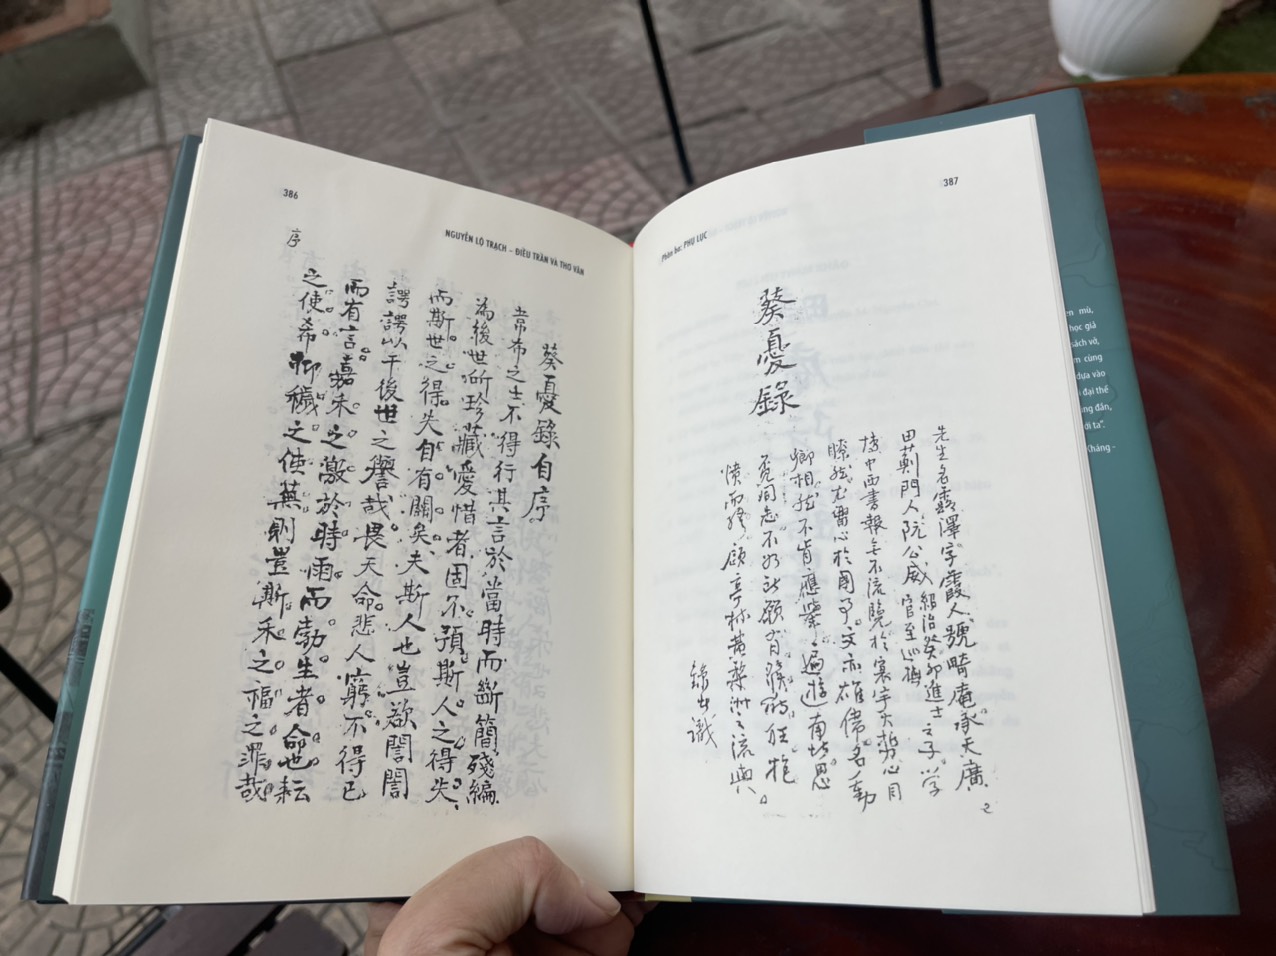 386
NGUYỄN LỘ TRẠCH – ĐIỀU TRẦN VÀ THƠ VĂN
序
葵憂錄自序。
常希之士不得行其言於當時而斷簡殘編
為後世所珍藏愛惜者固不預斯人之得失、
而斯世之得失自有關矣夫斯人也豈欲誾誾
諤諤以干後世之譽哉。畏天命悲人窮不得已
而有言。嘉禾之激於時雨而勃生者命也耘
之使希。柳穢之使蕪則豈斯禾之福之罪哉
387
Phần ba: PHỤ LỤC
葵憂錄
先生名露澤字霞人號畸庵承天廣
田薊門人阮公威紹治癸卯進士之子学
官至巡撫
博中西書報無不流覽於寰宇大勢心目
瞭然尤留心於國事文亦雄偉名動
卿相然不肯應舉遍遊南圻思
憤而終
之流與。
en mù,
học giả
sách vở,
m cùng
dựa vào
i đại thể
ng dẫn,
ới ta”.
Kháng -